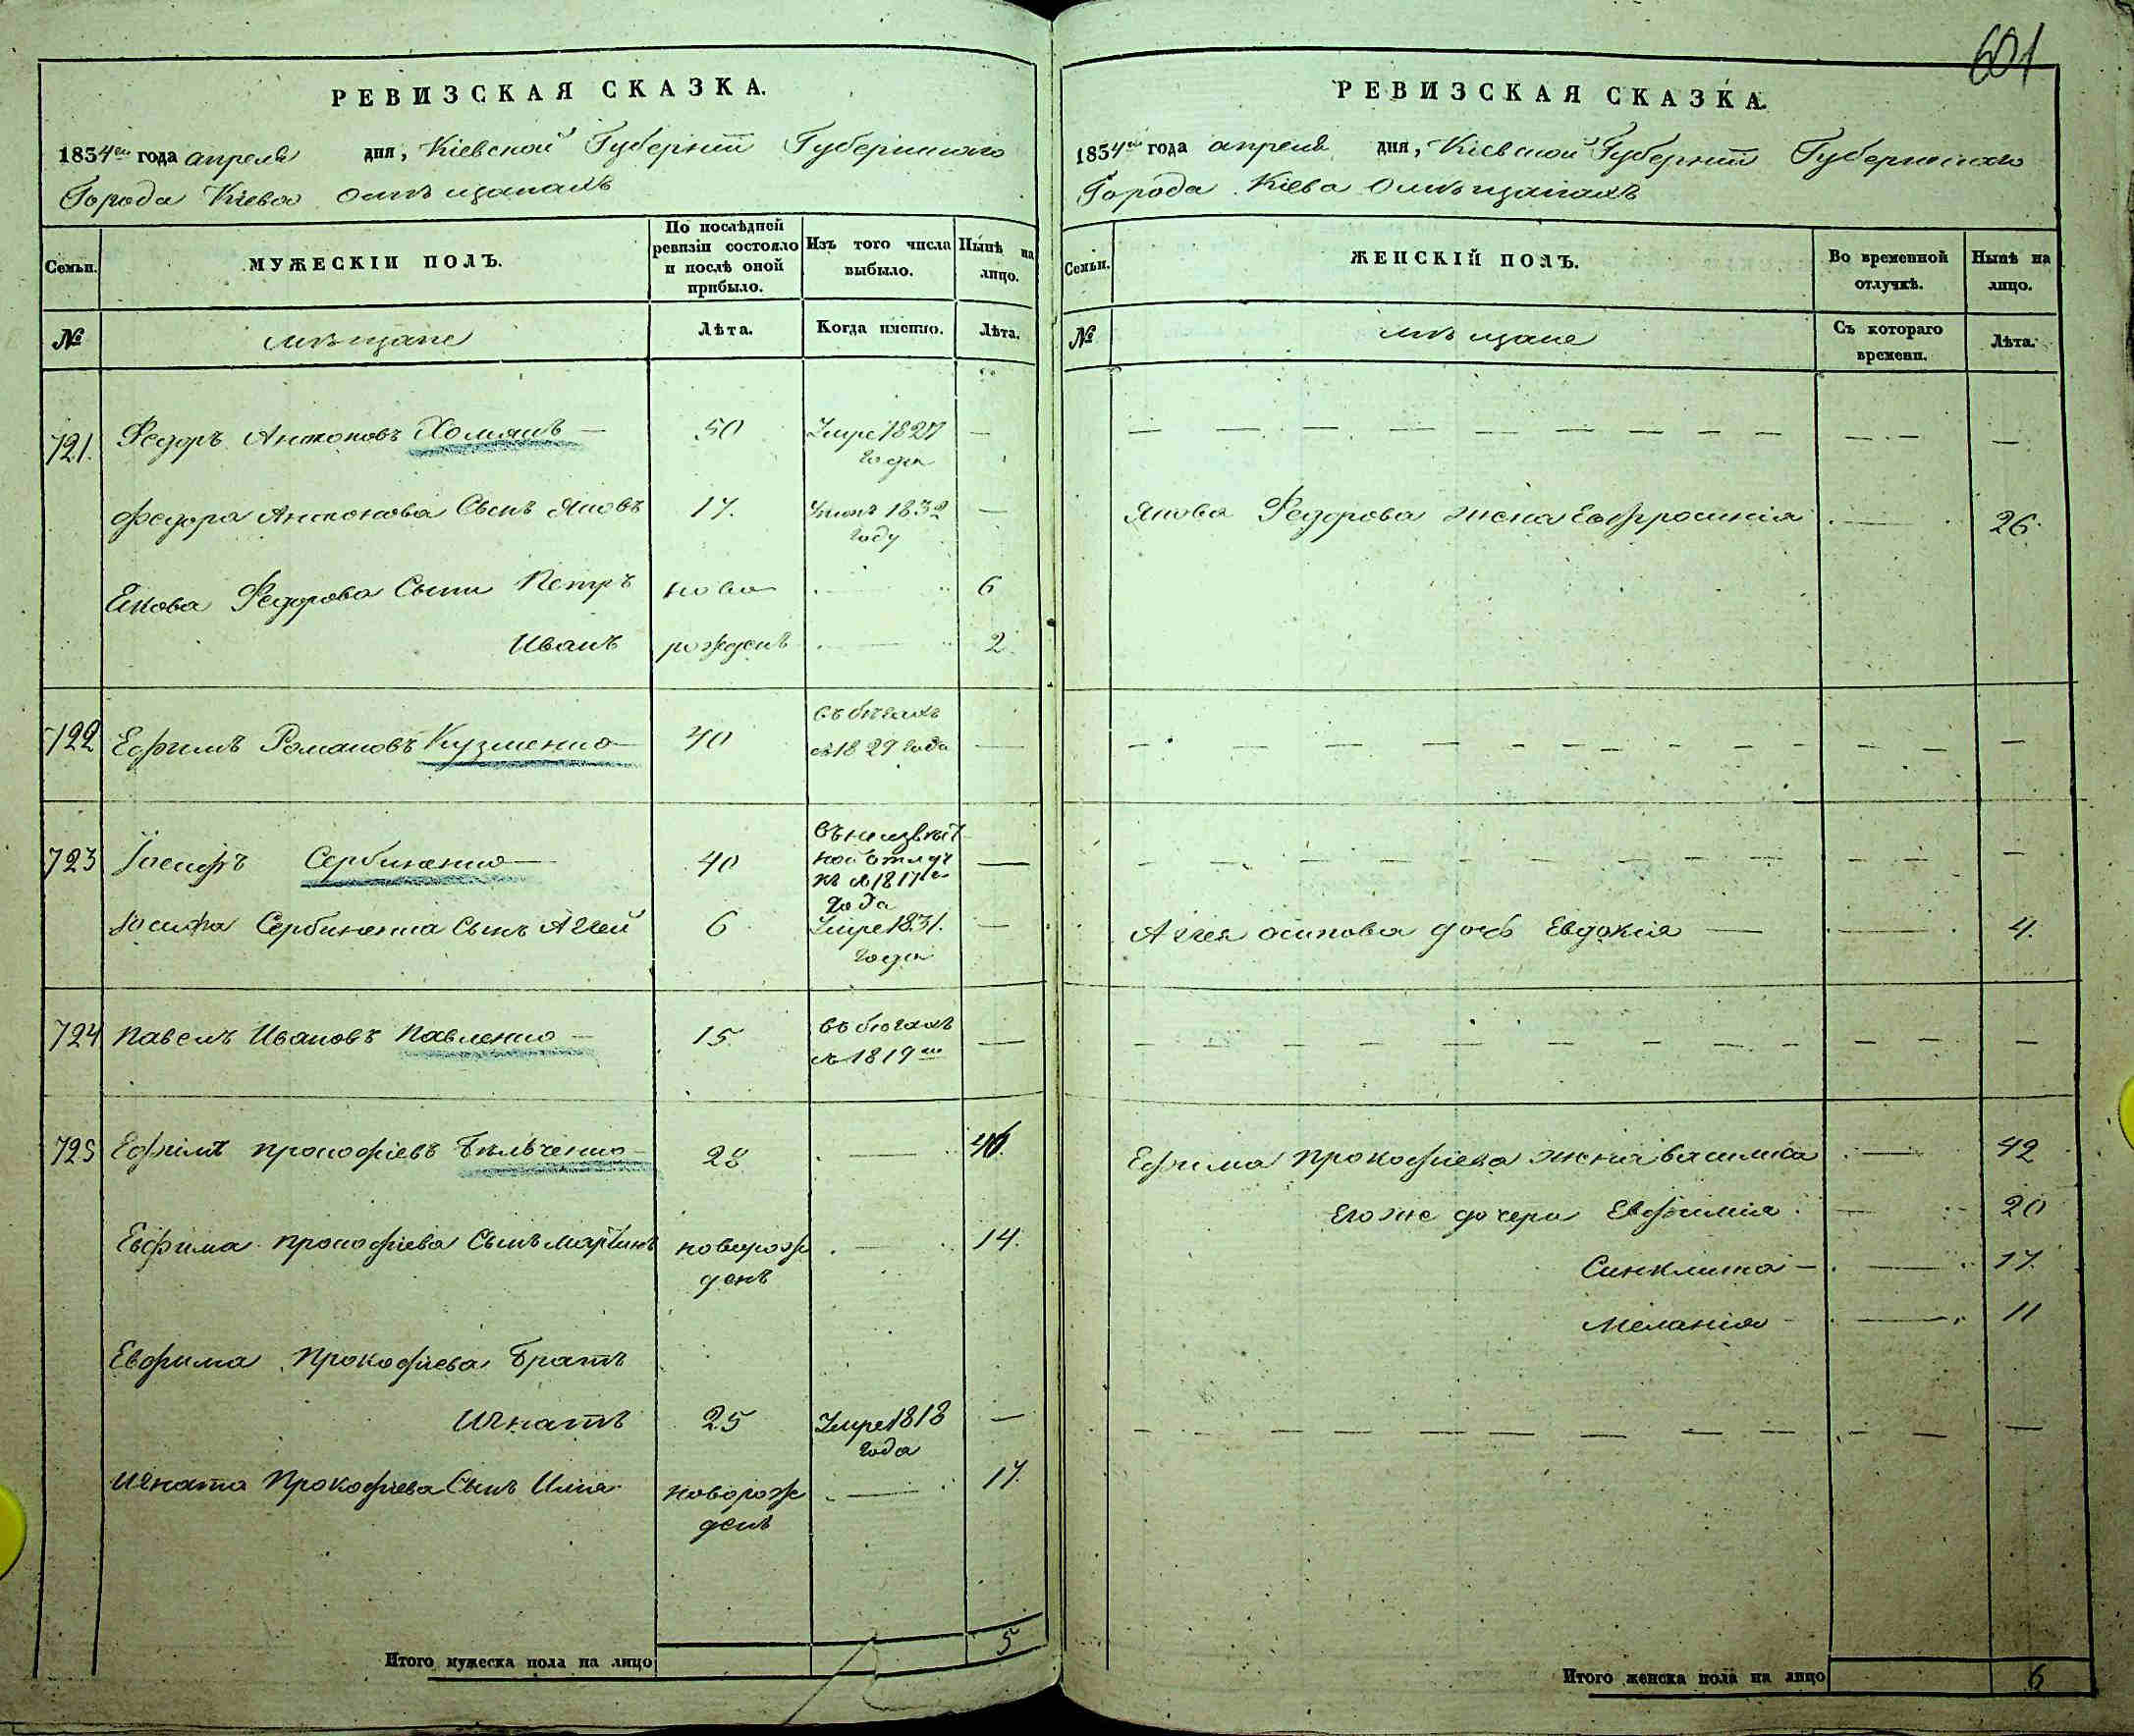 601
РЕВИЗСКАЯ СКАЗКА.
1834го года апреля дня, Кіевской Губерніи Губернского
Города Кіева о мѣщанахъ
Семьи.
МУЖЕСКІЙ ПОЛЪ.
По послѣдней ревизіи состояло и послѣ оной прибыло.
Изъ того числа выбыло.
Нынѣ на лицо.
№
мѣщане
Лѣта.
Когда имянно.
Лѣта.
721. Федоръ Антоновъ Хомякъ — 50 Умре 1827 —
года
Федора Антонова Сынъ Яковъ 17. 1832 —
году
Якова Федорова Сыны Петръ ново 6
Иванъ рожденъ 2.
722 Ефимъ Романовъ Кузменко 40 въ бѣгахъ
съ 1829 года —
723 Іосифъ Сербиненко — 40 въ неизвѣст
ной отлуч
кѣ съ 1817го —
года
Іосифа Сербиненка Сынъ Аггей 6 Умре 1831. —
года
724 Павелъ Ивановъ Павленко — 15 въ бѣгахъ
съ 1819го —
725 Ефимъ Прокофіевъ Бѣльченко 28 — 46.
Евфима Прокофіева Сынъ Мартинъ новорож — 14.
денъ
Евфима Прокофіева Братъ
Игнатъ 25 Умре 1818 —
года
Игната Прокофіева Сынъ Илія новорож — 17.
денъ
Итого мужеска пола на лицо 5
РЕВИЗСКАЯ СКАЗКА.
1834го года апреля дня, Кіевской Губерніи Губернского
Города Кіева о мѣщанахъ
Семьи.
ЖЕНСКІЙ ПОЛЪ.
Во временной отлучкѣ.
Нынѣ на лицо.
№
мѣщане
Съ котораго времени.
Лѣта.
Якова Федорова жена Евфросинія — 26.
Аггея Осипова дочь Евдокія — 4.
Ефима Прокофіева жена Василиса — 42
Его же дочери Евфимія — 20
Синклита — 17.
Меланія — 11
Итого женска пола на лицо 6